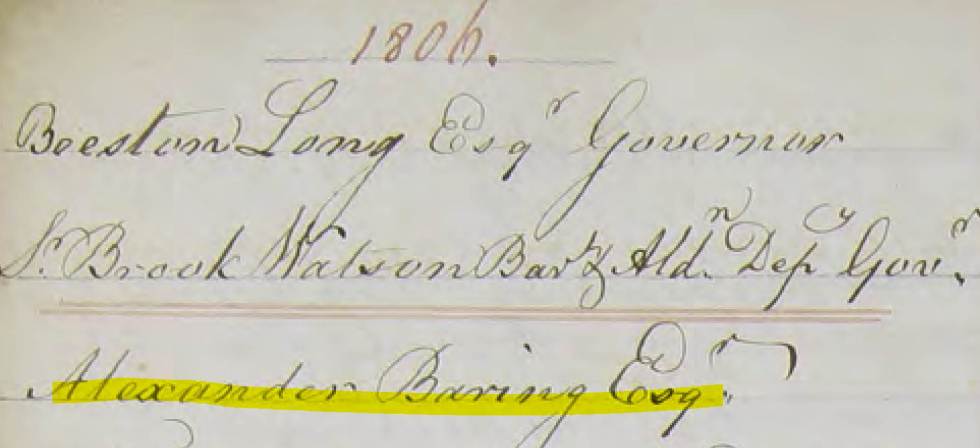 1806.
Beeston Long Esqr Governor
Sr. Brook Watson Bart & Aldn. Depy Govr.
Alexander Baring Esqr.